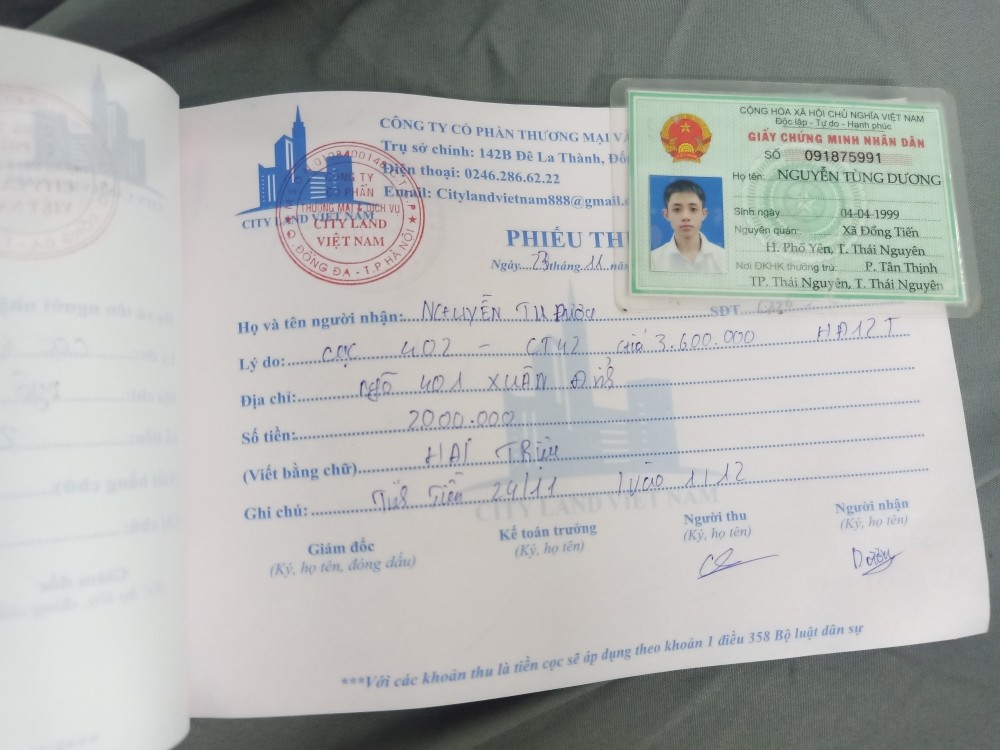 CÔNG TY CỔ PHẦN THƯƠNG MẠI VÀ
Trụ sở chính: 142B Đê La Thành, Đố
Điện thoại: 0246.286.62.22
Email: Citylandvietnam888@gmail.c
CÔNG TY
CỔ PHẦN
THƯƠNG MẠI & DỊCH VỤ
CITY LAND
VIỆT NAM
Q. ĐỐNG ĐA - T.P HÀ NỘI
CITY LAND VIỆT NAM
CỘNG HÒA XÃ HỘI CHỦ NGHĨA VIỆT NAM
Độc lập - Tự do - Hạnh phúc
GIẤY CHỨNG MINH NHÂN DÂN
SỐ 091875991
Họ tên: NGUYỄN TÙNG DƯƠNG
Sinh ngày 04-04-1999
Nguyên quán: Xã Đồng Tiến
H. Phổ Yên, T. Thái Nguyên
Nơi ĐKHK thường trú: P. Tân Thịnh
TP. Thái Nguyên, T. Thái Nguyên
PHIẾU TH
Ngày 23 tháng 11 nă
Họ và tên người nhận: NGUYỄN SĐT
Lý do: CỌC 402 - CT42 giá 3.600.000 HĐ12T
Địa chỉ: NGÕ 401 XUÂN ĐỈNH
Số tiền: 2000.000
(Viết bằng chữ) HAI TRIỆU
Ghi chú: Tính Tiền 24/11 vào 1/12
CITY LAND VIỆT NAM
Giám đốc Kế toán trưởng Người thu Người nhận
(Ký, họ tên, đóng dấu) (Ký, họ tên) (Ký, họ tên) (Ký, họ tên)
Dương
***Với các khoản thu là tiền cọc sẽ áp dụng theo khoản 1 điều 358 Bộ luật dân sự